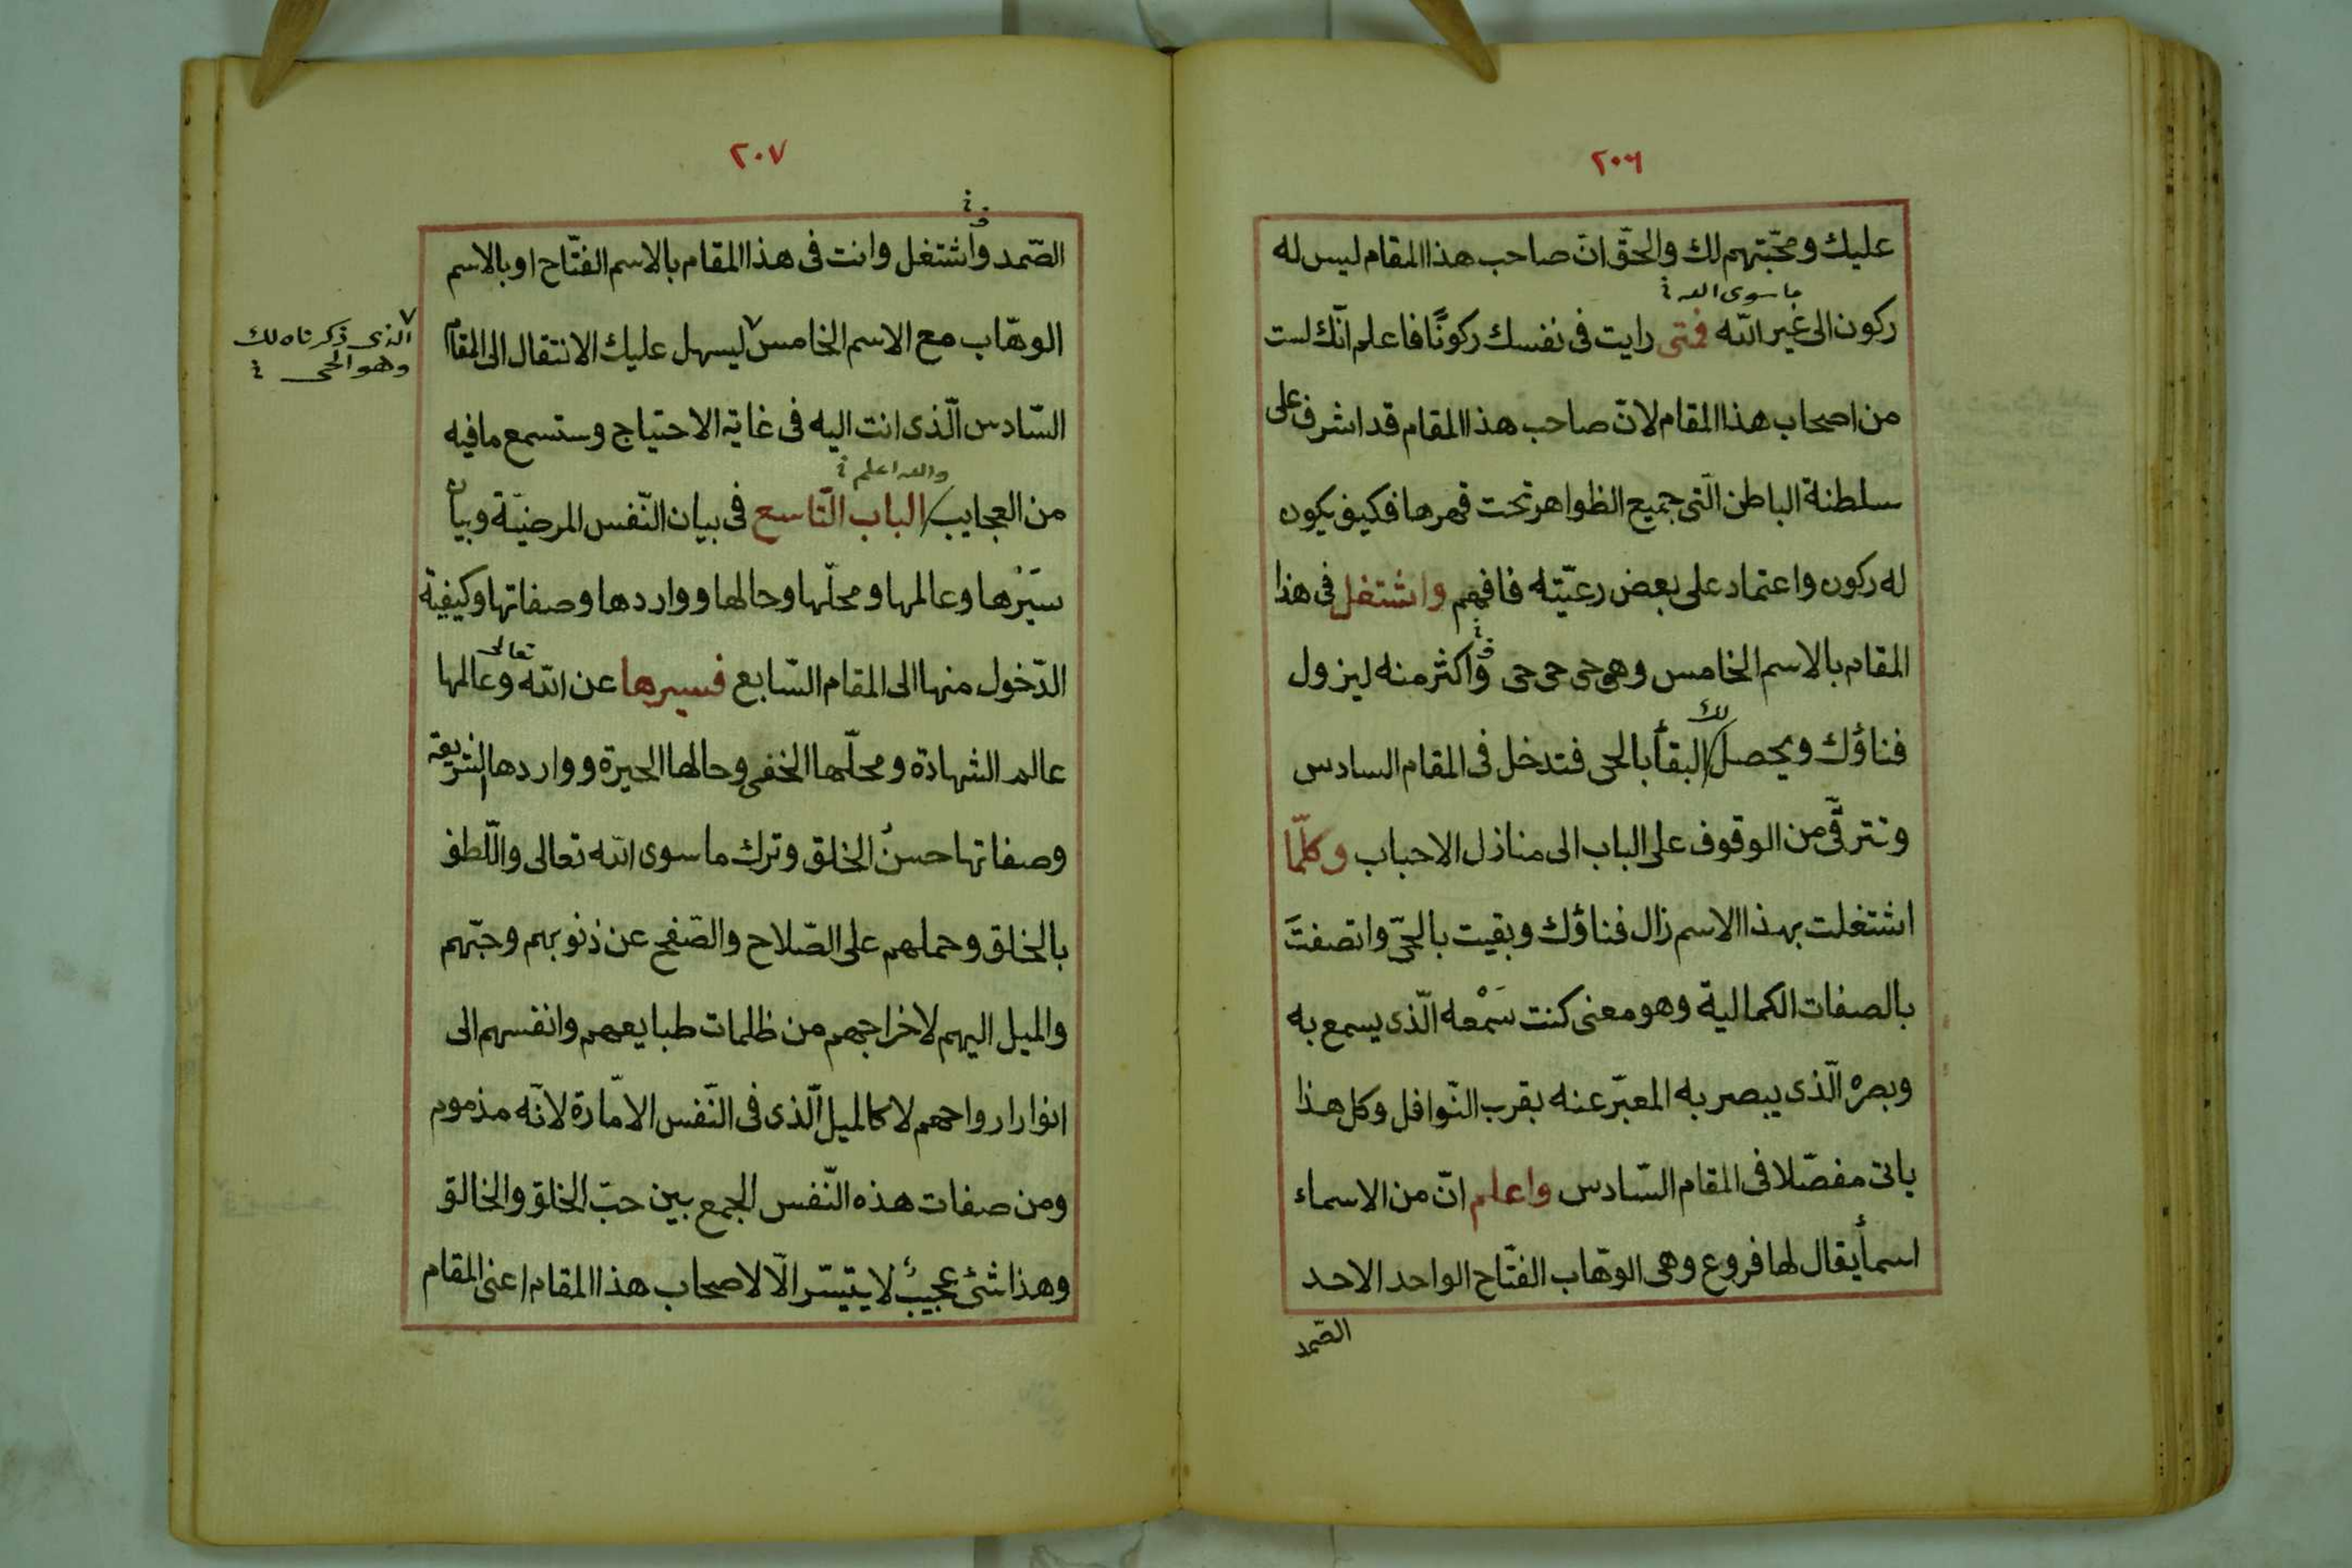 ٢٠٦
عليك ومحبّتهم لك والحقّ انّ صاحب هذا المقام ليس له
ما سوى الله
ركون الى غير الله فمتى رايت فى نفسك ركونًا فاعلم انّك لست
من اصحاب هذا المقام لانّ صاحب هذا المقام قد اشرف على
سلطنة الباطن الّتى جميع الظواهر تحت قهرها فكيف يكون
له ركون واعتماد على بعض رعيّته فافهم واشتغل فى هذا
المقام بالاسم الخامس وهو حى حى حى واكثر منه ليزول
فناؤك ويحصل لك البقأ بالحى فتدخل فى المقام السادس
وتترقّى من الوقوف على الباب الى منازل الاحباب وكلّما
اشتغلت بهذا الاسم زال فناؤك وبقيت بالحىّ واتصفتَ
بالصفات الكمالية وهو معنى كنت سَمْعه الّذى يسمع به
وبصره الّذى يبصر به المعبّر عنه بقرب النّوافل وكل هذا
ياتى مفصّلا فى المقام السّادس واعلم انّ من الاسماء
اسمأ يقال لها فروع وهى الوهّاب الفتّاح الواحد الاحد
الصّمد
٢٠٧
الصّمد واشتغل وانت فى هذا المقام بالاسم الفتّاح او بالاسم
الوهّاب مع الاسم الخامس ليسهل عليك الانتقال الى المقام
الذى ذكرناه لك
وهو الحى
السّادس الّذى انت اليه فى غاية الاحتياج وستسمع ما فيه
والله اعلم
من العجايب الباب التّاسع فى بيان النّفس المرضيّة وبيان
سَيْرها وعالمها ومحلّها وحالها وواردها وصفاتها وكيفية
الدّخول منها الى المقام السّابع فسيرها عن الله تعالى وعالمها
عالم الشهادة ومحلّها الخفى وحالها الحيرة وواردها الشريعة
وصفاتها حسنُ الخلق وترك ما سوى الله تعالى واللّطف
بالخلق وحملهم على الصّلاح والصّفح عن ذنوبهم وحبّهم
والميل اليهم لاخراجهم من ظلمات طبايعهم وانفسهم الى
انوار ارواحهم لا كالميل الّذى فى النّفس الامّارة لانّه مذموم
ومن صفات هذه النّفس الجمع بين حبّ الخلق والخالق
وهذا شئ عجيبٌ لا يتيسّر الّا لاصحاب هذا المقام اعنى المقام